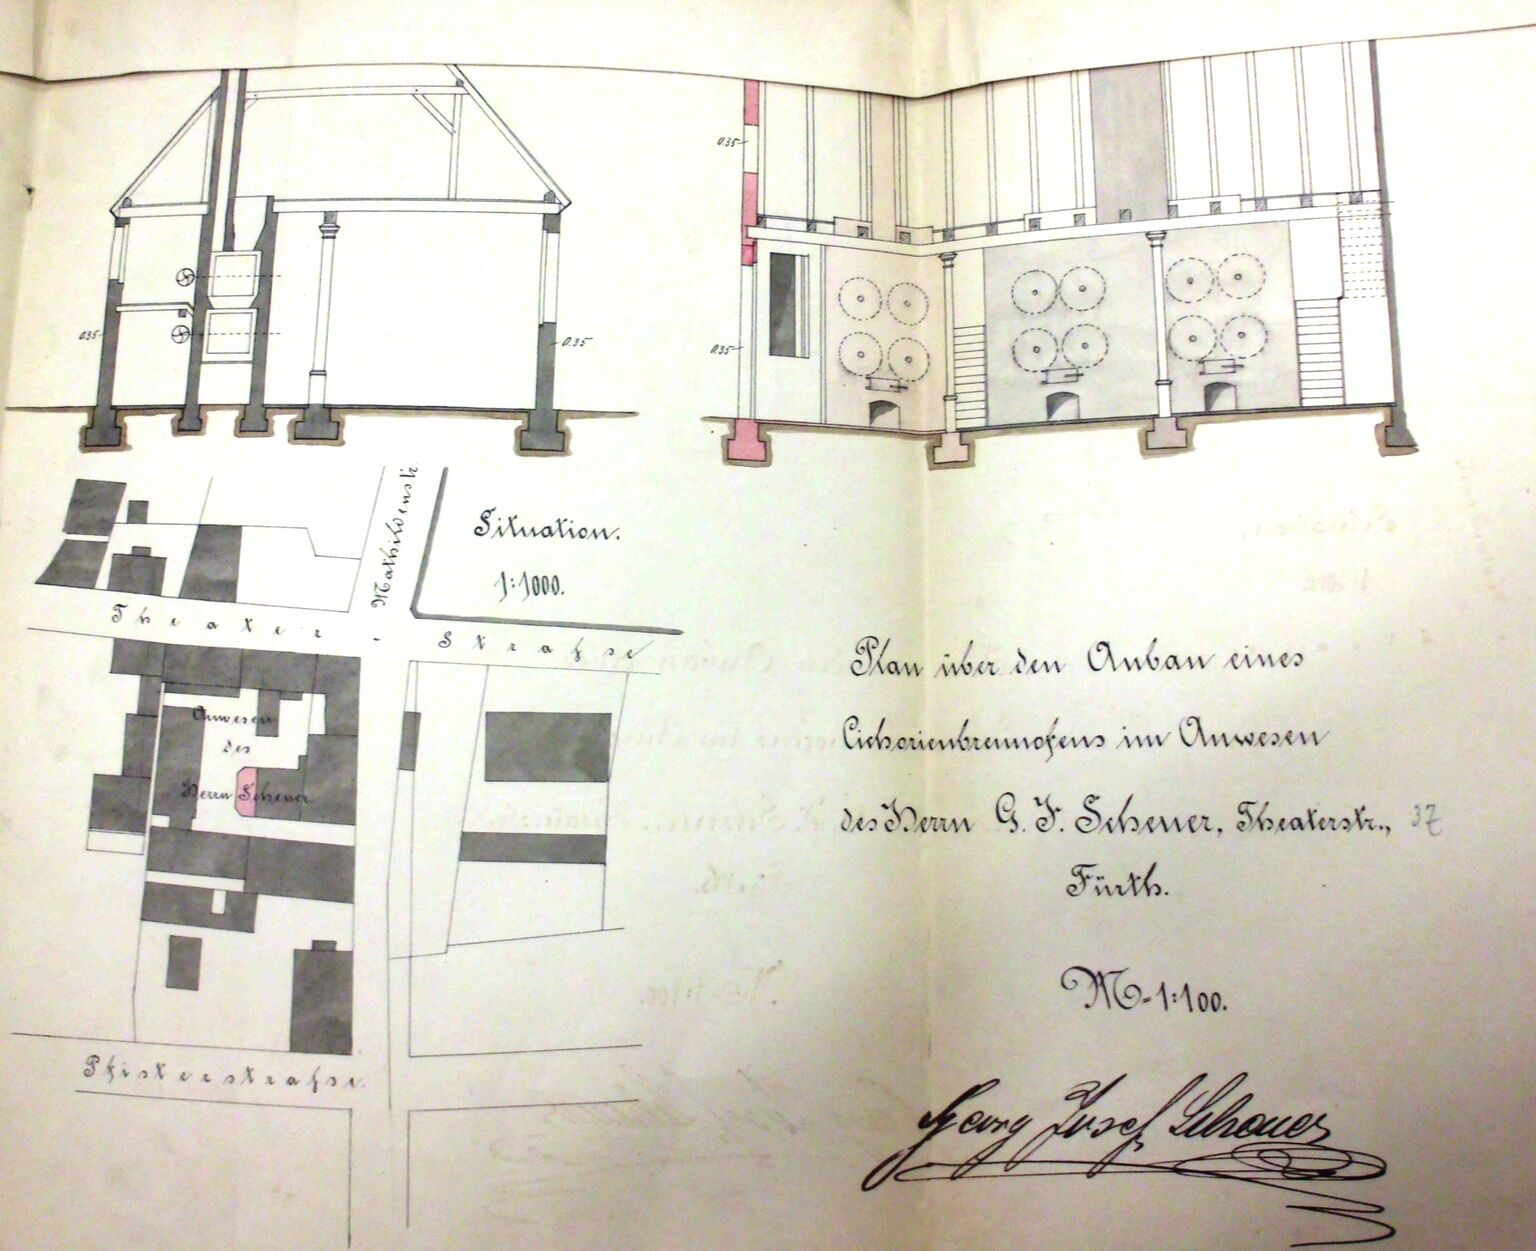 0.35
0.35
0.35
0.35
Situation.
1:1000.
Mathildenstr.
Theater - Straße
Anwesen
des
Herrn Scheuer
Pfisterstraße.
Plan über den Anbau eines
Cichorienbrennofens im Anwesen
des Herrn G. J. Scheuer, Theaterstr., 37
Fürth.
M-1:100.
Georg Josef Scheuer